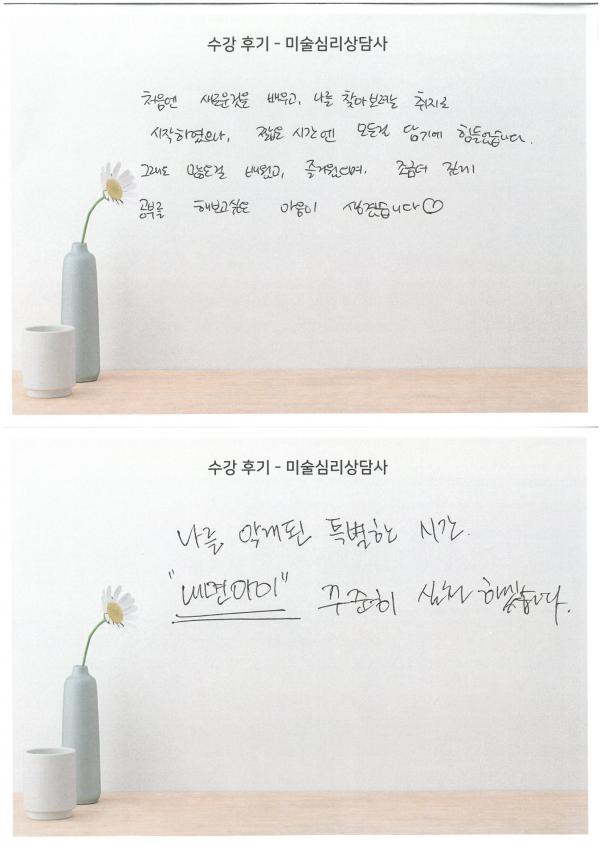 수강 후기 - 미술심리상담사
처음엔 새로운것을 배우고, 나를 찾아보려는 취지로
시작하였으나, 짧은 시간엔 모든걸 담기에 힘들었습니다.
그래도 많은걸 배웠고, 즐거웠으며, 조금더 깊게
공부를 해보고싶은 마음이 생겼습니다♡
수강 후기 - 미술심리상담사
나를 알게된 특별한 시간.
"내면아이" 꾸준히